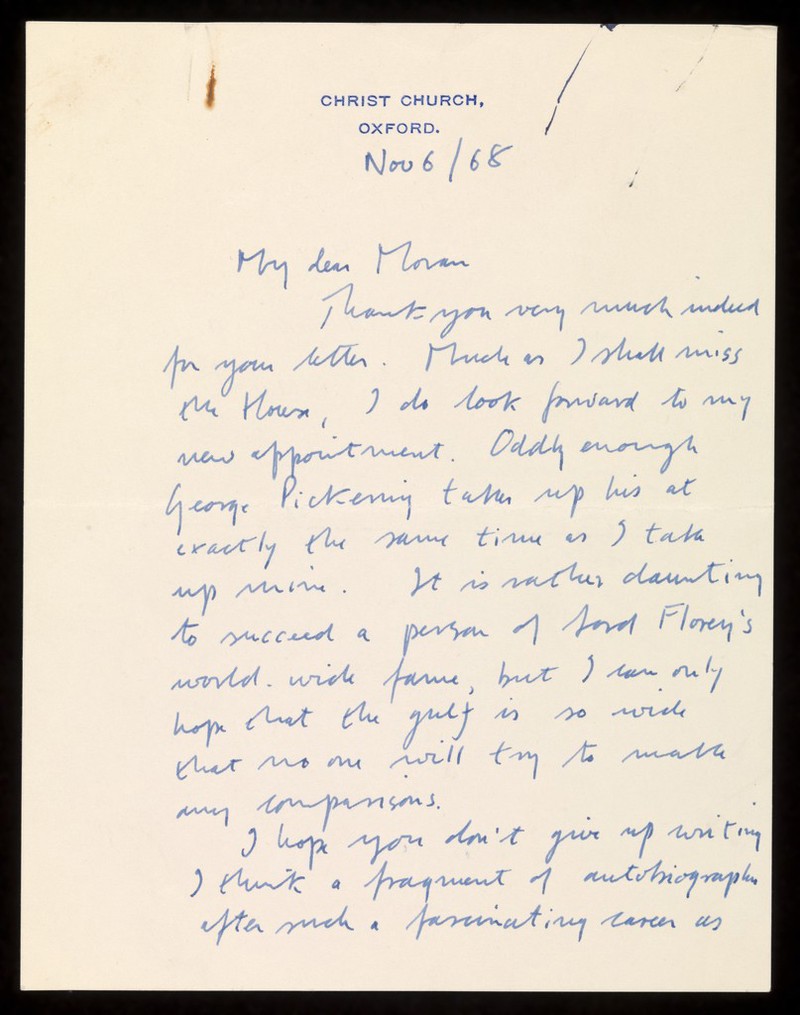 CHRIST CHURCH,
OXFORD.
Nov 6/68
My dear Moran
Thank you very much indeed
for your letter. Much as I shall miss
the House, I do look forward to my
new appointment. Oddly enough
George Pickering takes up his at
exactly the same time as I take
up mine. It is rather daunting
to succeed a person of Lord Florey's
world-wide fame, but I can only
hope that the gulf is so wide
that no one will try to make
any comparisons.
I hope you don't give up writing
I think a fragment of autobiography
after such a fascinating career as